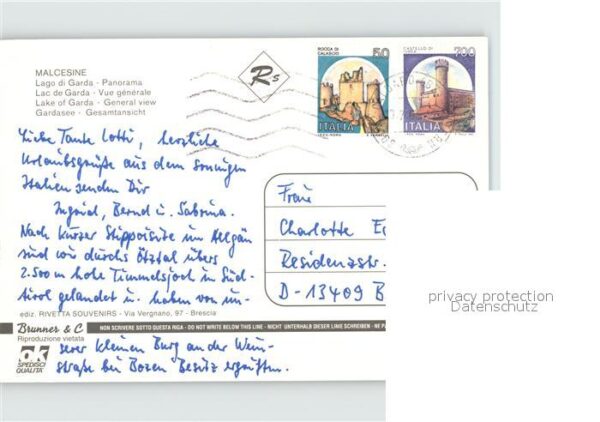 MALCESINE
Lago di Garda - Panorama
Lac de Garda - Vue générale
Lake of Garda - General view
Gardasee - Gesamtansicht
R5
ROCCA DI CALASCIO 50
ITALIA
CASTELLO DI 700
ITALIA
Liebe Tante Lotti, herzliche
Urlaubsgrüße aus dem sonnigen
Italien senden Dir
Ingrid, Bernd u. Sabrina.
Nach kurzer Stippvisite im Allgäu
sind wir durchs Ötztal übers
2.500 m hohe Timmelsjoch in Süd-
tirol gelandet u. haben von un-
ediz. RIVETTA SOUVENIRS - Via Vergnano, 97 - Brescia
Brunner & C
Riproduzione vietata
NON SCRIVERE SOTTO QUESTA RIGA - DO NOT WRITE BELOW THIS LINE - NICHT UNTERHALB DIESER LINIE SCHREIBEN - NE PA
OK
SPEDISCI
QUALITA'
serer kleinen Burg an der Wein-
straße bei Bozen Besitz ergriffen.
Frau
Charlotte E
Residenzstr.
D-13409 B
privacy protection
Datenschutz